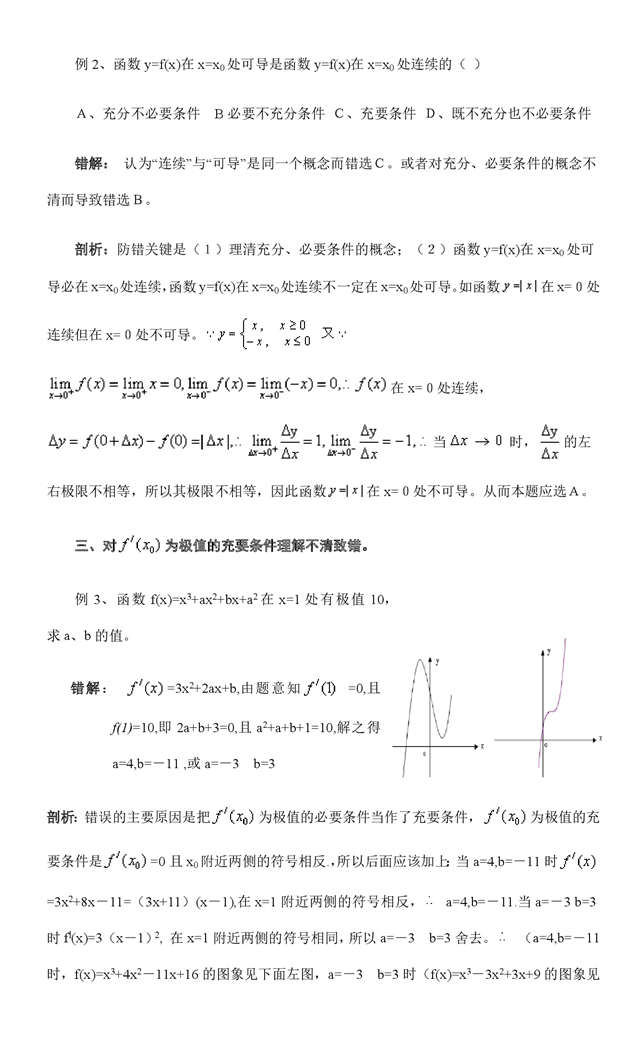 例2、函数 y=f(x)在 x=x₀处可导是函数 y=f(x)在 x=x₀处连续的（ ）
A、充分不必要条件 B必要不充分条件 C、充要条件 D、既不充分也不必要条件
错解： 认为“连续”与“可导”是同一个概念而错选C。或者对充分、必要条件的概念不
清而导致错选B。
剖析：防错关键是（1）理清充分、必要条件的概念；（2）函数 y=f(x)在 x=x₀处可
导必在 x=x₀处连续，函数 y=f(x)在 x=x₀处连续不一定在 x=x₀处可导。如函数 y=|x|在 x=0处
连续但在 x=0处不可导。∵ y={x, x≥0 -x, x≤0 又∵
lim x→0⁺ f(x)=lim x→0⁺ x=0, lim x→0⁻ f(x)=lim x→0⁻ (-x)=0,∴ f(x)在 x=0处连续，
Δy=f(0+Δx)-f(0)=|Δx|,∴ lim Δx→0⁺ Δy/Δx=1, lim Δx→0⁻ Δy/Δx=-1,∴当Δx→0时，Δy/Δx的左
右极限不相等，所以其极限不相等，因此函数y=|x|在 x=0处不可导。从而本题应选A。
三、对 f′(x₀) 为极值的充要条件理解不清致错。
例 3、函数 f(x)=x³+ax²+bx+a²在 x=1 处有极值 10，
求 a、b 的值。
y
x
o
y
x
o
错解： f′(x)=3x²+2ax+b,由题意知 f′(1) =0,且
f(1)=10,即 2a+b+3=0,且 a²+a+b+1=10,解之得
a=4,b=－11 ,或 a=－3 b=3
剖析：错误的主要原因是把 f′(x₀) 为极值的必要条件当作了充要条件， f′(x₀) 为极值的充
要条件是 f′(x₀)=0 且 x₀附近两侧的符号相反.，所以后面应该加上：当 a=4,b=－11 时 f′(x)
=3x²+8x－11=（3x+11）(x－1),在 x=1 附近两侧的符号相反，∴ a=4,b=－11.当 a=－3 b=3
时 f′(x)=3（x－1）², 在 x=1 附近两侧的符号相同，所以 a=－3 b=3 舍去。∴ （a=4,b=－11
时，f(x)=x³+4x²－11x+16 的图象见下面左图，a=－3 b=3 时（f(x)=x³－3x²+3x+9 的图象见